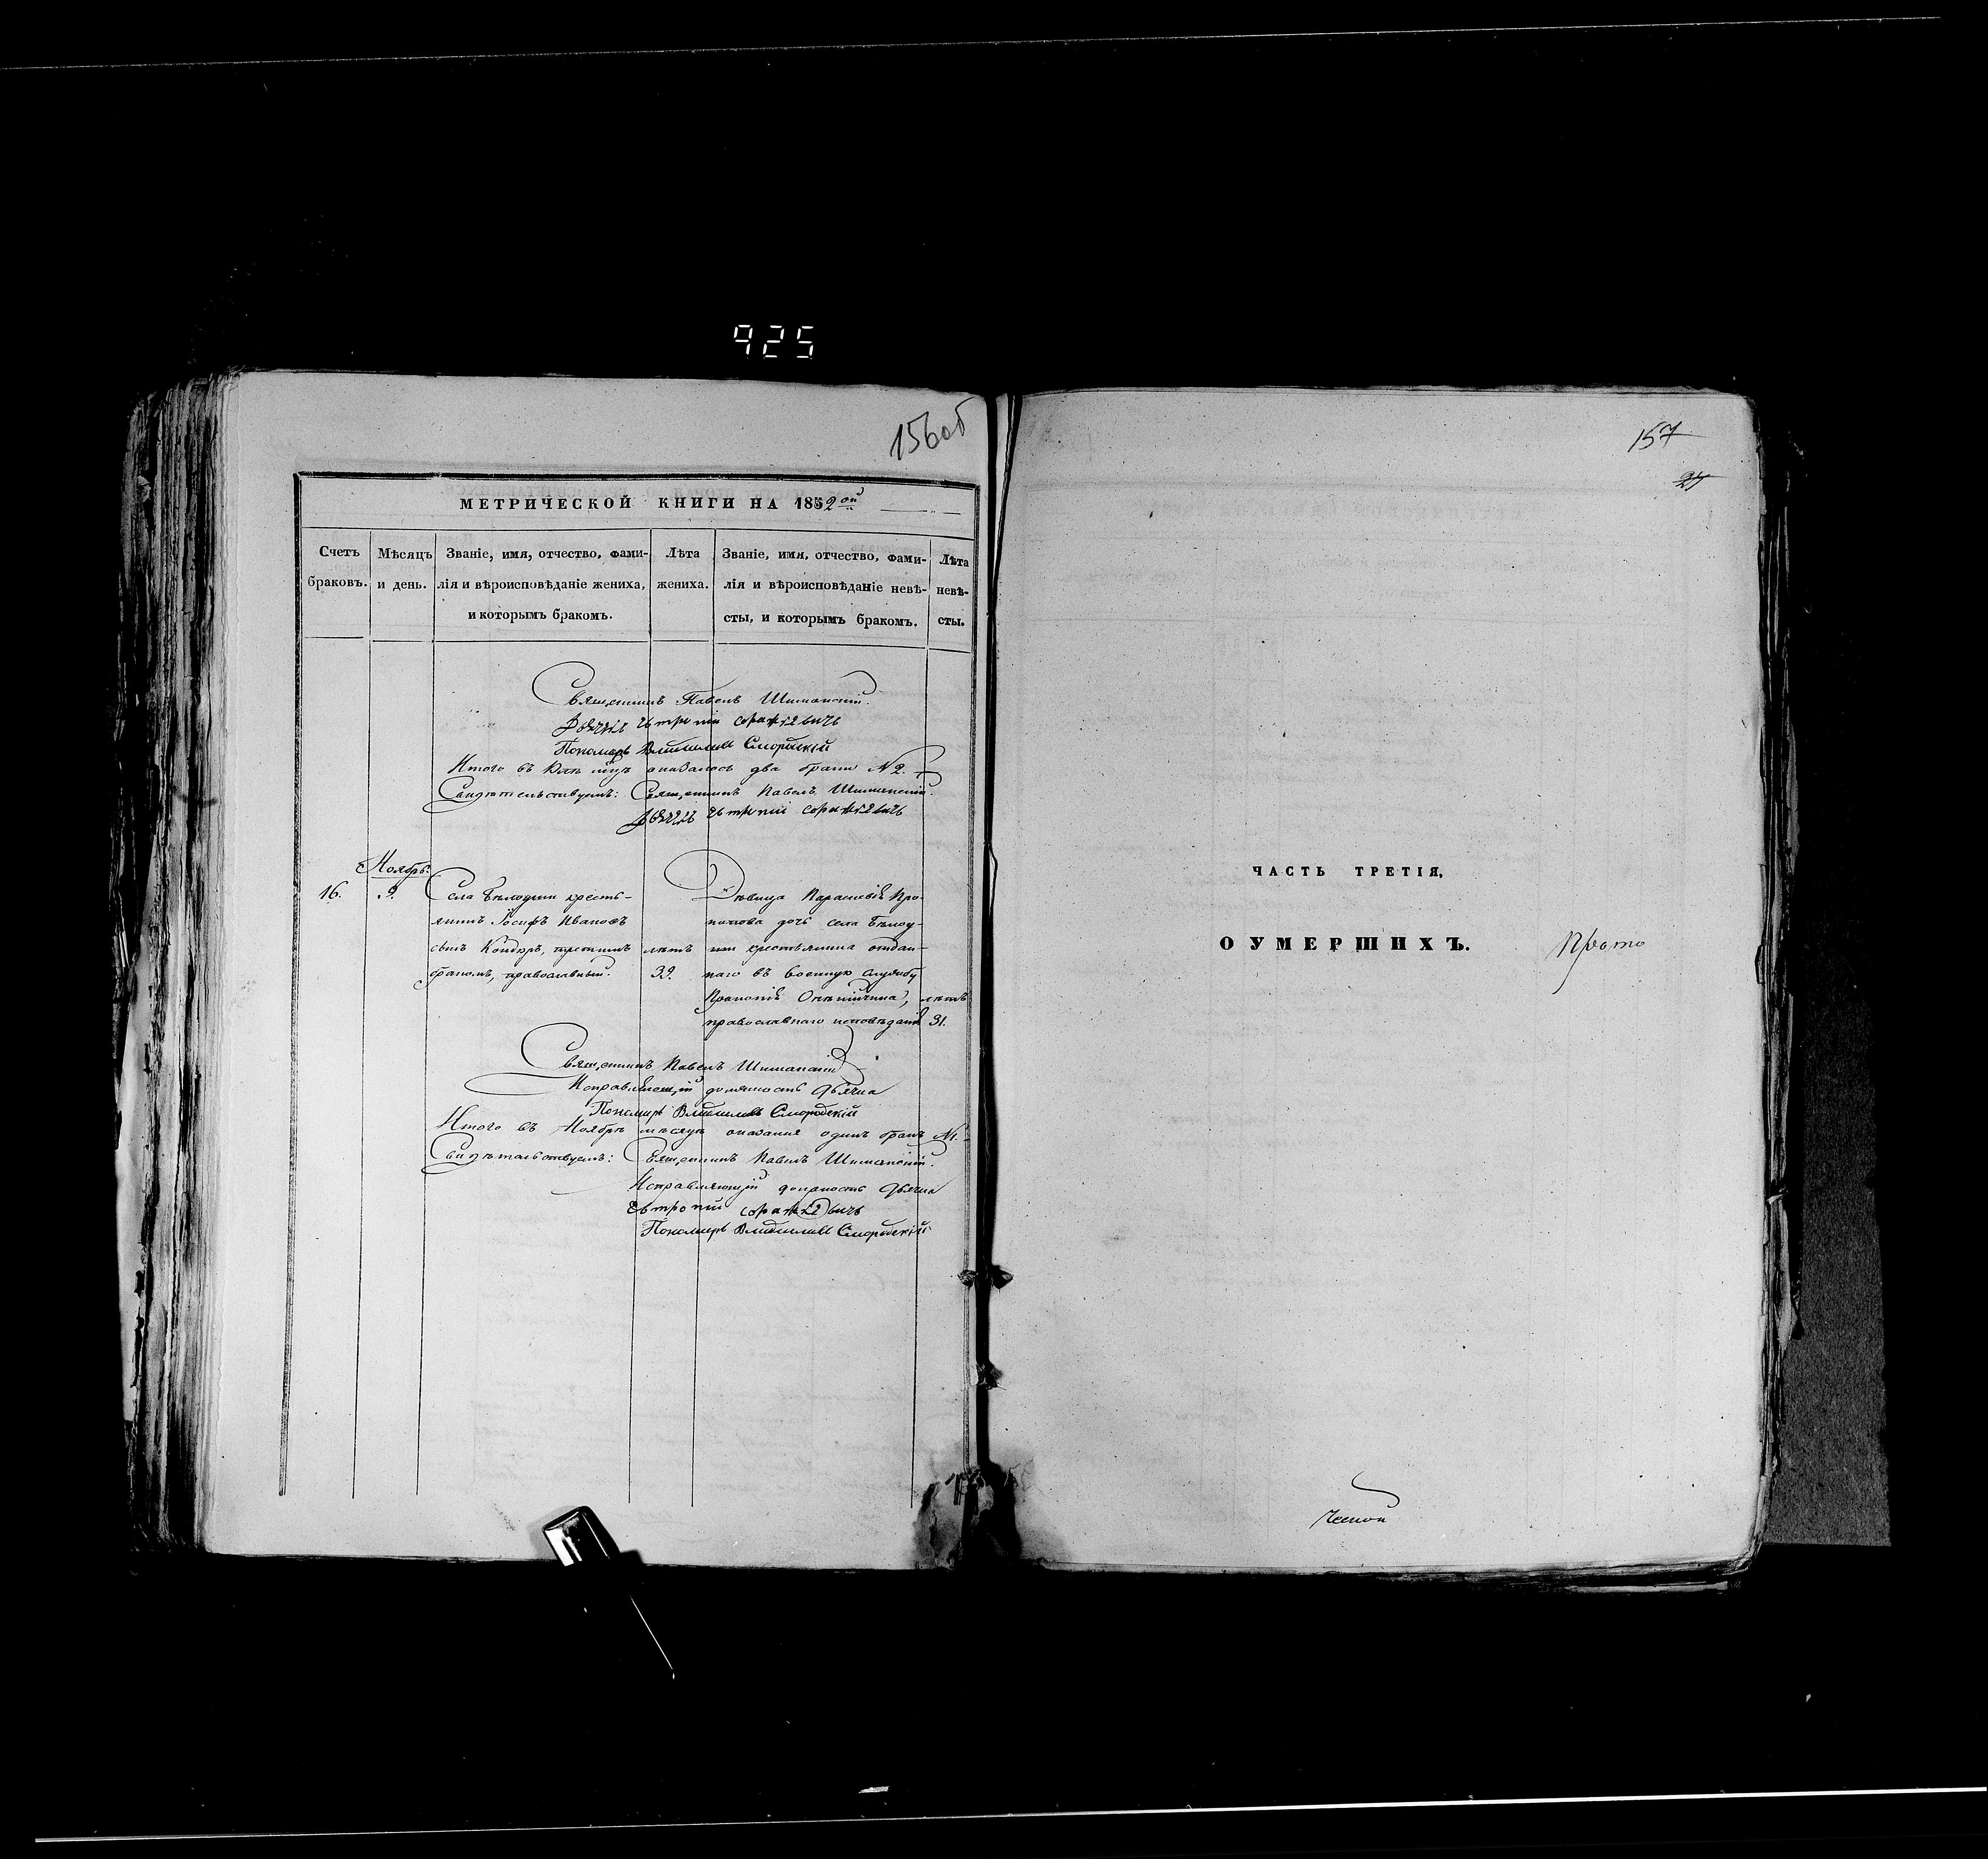 925
156об
МЕТРИЧЕСКОЙ КНИГИ НА 1852ой
Счетъ браковъ.
Мѣсяцъ и день.
Званіе, имя, отчество, фами-
лія и вѣроисповѣданіе жениха,
и которымъ бракомъ.
Лѣта
жениха.
Званіе, имя, отчество, фами-
лія и вѣроисповѣданіе невѣ-
сты, и которымъ бракомъ.
Лѣта
невѣ-
сты.
Священникъ Павелъ Шиманскій.
Дьячекъ
Пономарь Смородскій
Итого въ оказалось два брака №2.
Свидѣтельствуемъ: Священникъ Павелъ Шиманскій.
Дьячекъ
Ноябрь.
16.
9.
Села кресть-
янинъ Іосифъ Ивановъ
сынъ третьимъ
бракомъ, православный.
лѣтъ
39.
Дѣвица Про-
копова дочь села
крестьянина отдан-
наго въ военную службу
Прокопія
православнаго исповѣданія
лѣтъ
31.
Священникъ Павелъ Шиманскій
Исправляющій должность Дьячка
Пономарь Смородскій
Итого въ Ноябрѣ мѣсяцѣ оказался одинъ бракъ №1.
Свидѣтельствуемъ: Священникъ Павелъ Шиманскій.
Исправляющій должность Дьячка
Пономарь Смородскій
157
27
ЧАСТЬ ТРЕТІЯ,
О УМЕРШИХЪ.